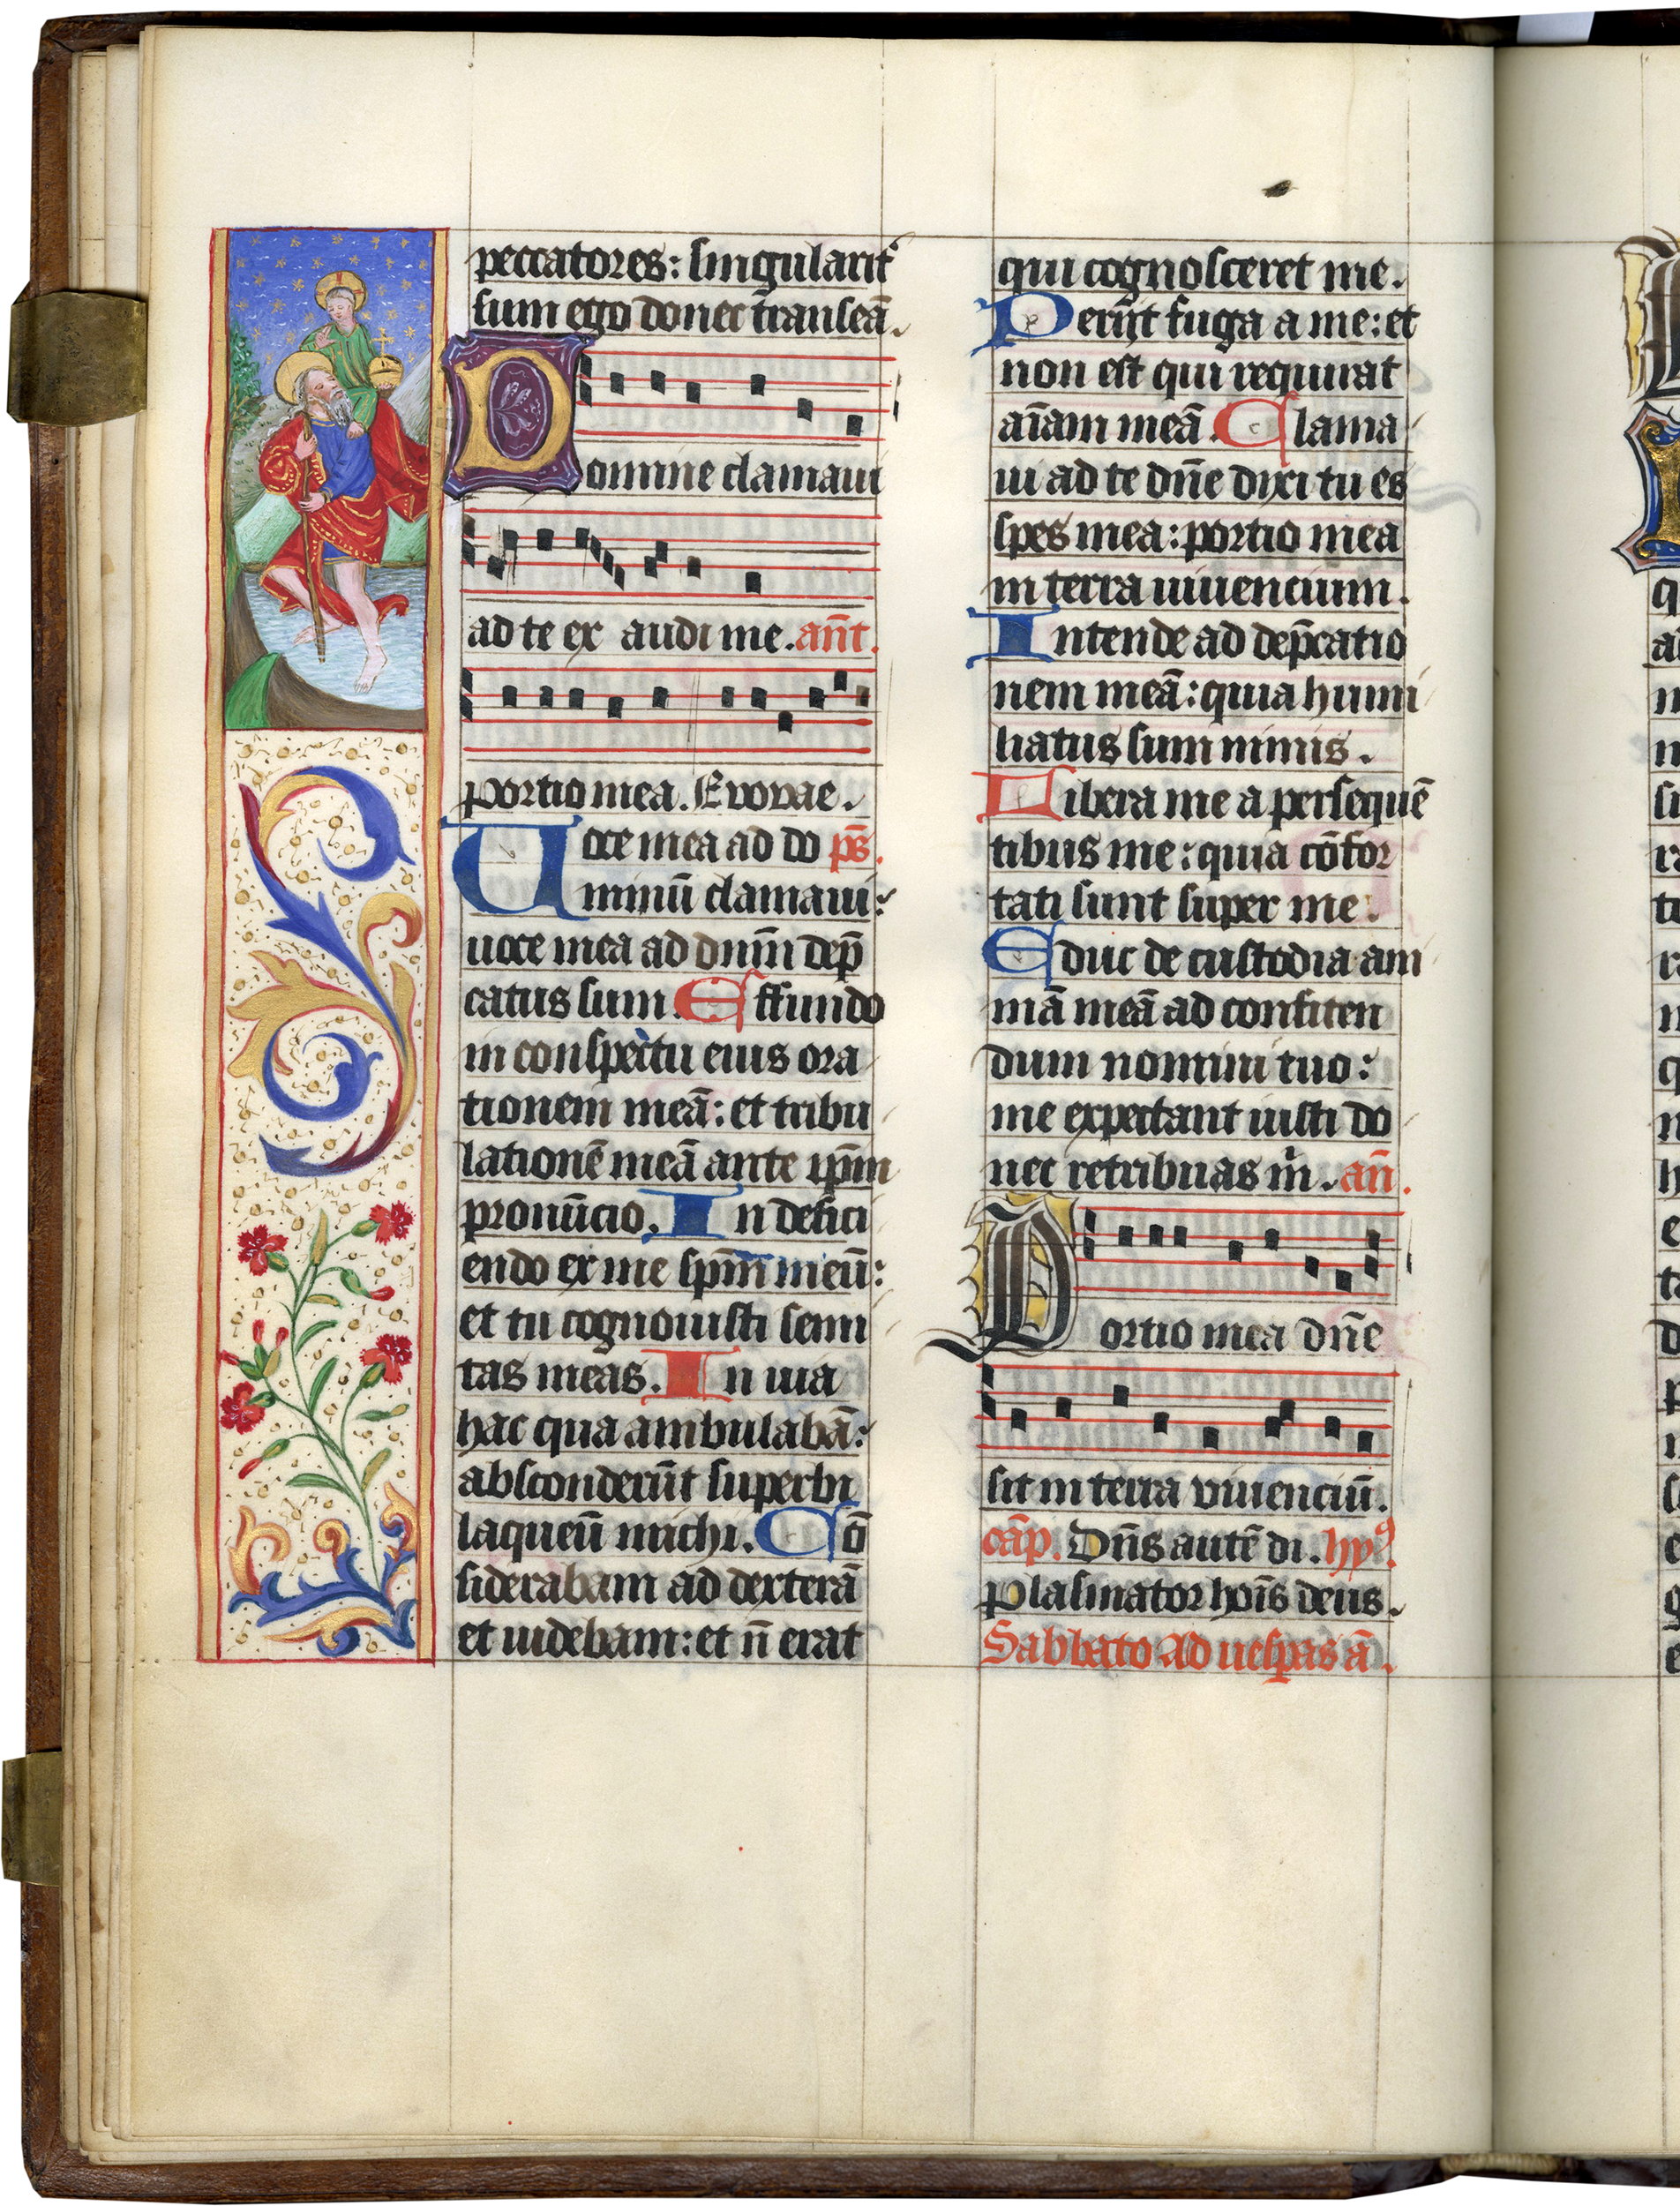 peccatores: singularit᷑
sum ego donec transeā.
Domine clamaui
ad te ex audi me. an̄t.
portio mea. Evovae.
Uoce mea ad do ps̄.
minū clamaui:
uoce mea ad dnm̄ dep̄
catus sum. Effundo
in conspectu eius ora
tionem meā: et tribu
lationē meā ante ip̄m
pronūcio. In defici
endo ex me sp̄m meū:
et tu cognouisti semi
tas meas. In uia
hac qua ambulabā:
absconderūt superbi
laqueū michi. Cō
siderabam ad dexterā
et uidebam: et n̄ erat
qui cognosceret me.
Periit̄ fuga a me: et
non est qui requirat
aīam meā. Clama
ui ad te dn̄e dixi tu es
spes mea: portio mea
in terra uiuencium.
Intende ad dep̄catio
nem meā: quia humi
liatus sum nimis.
Libera me a persequē
tibus me: quia cōfor
tati sunt super me.
Educ de custodia ani
mā meā ad confiten
dum nomini tuo:
me expectant iusti do
nec retribuas m̄. an̄.
Portio mea dn̄e
sit in terra viuenciū.
cāp. Dn̄s autē di. hyꝰ.
Plasmator hoīs deus.
Sabbato Ad uesp̄as ā.